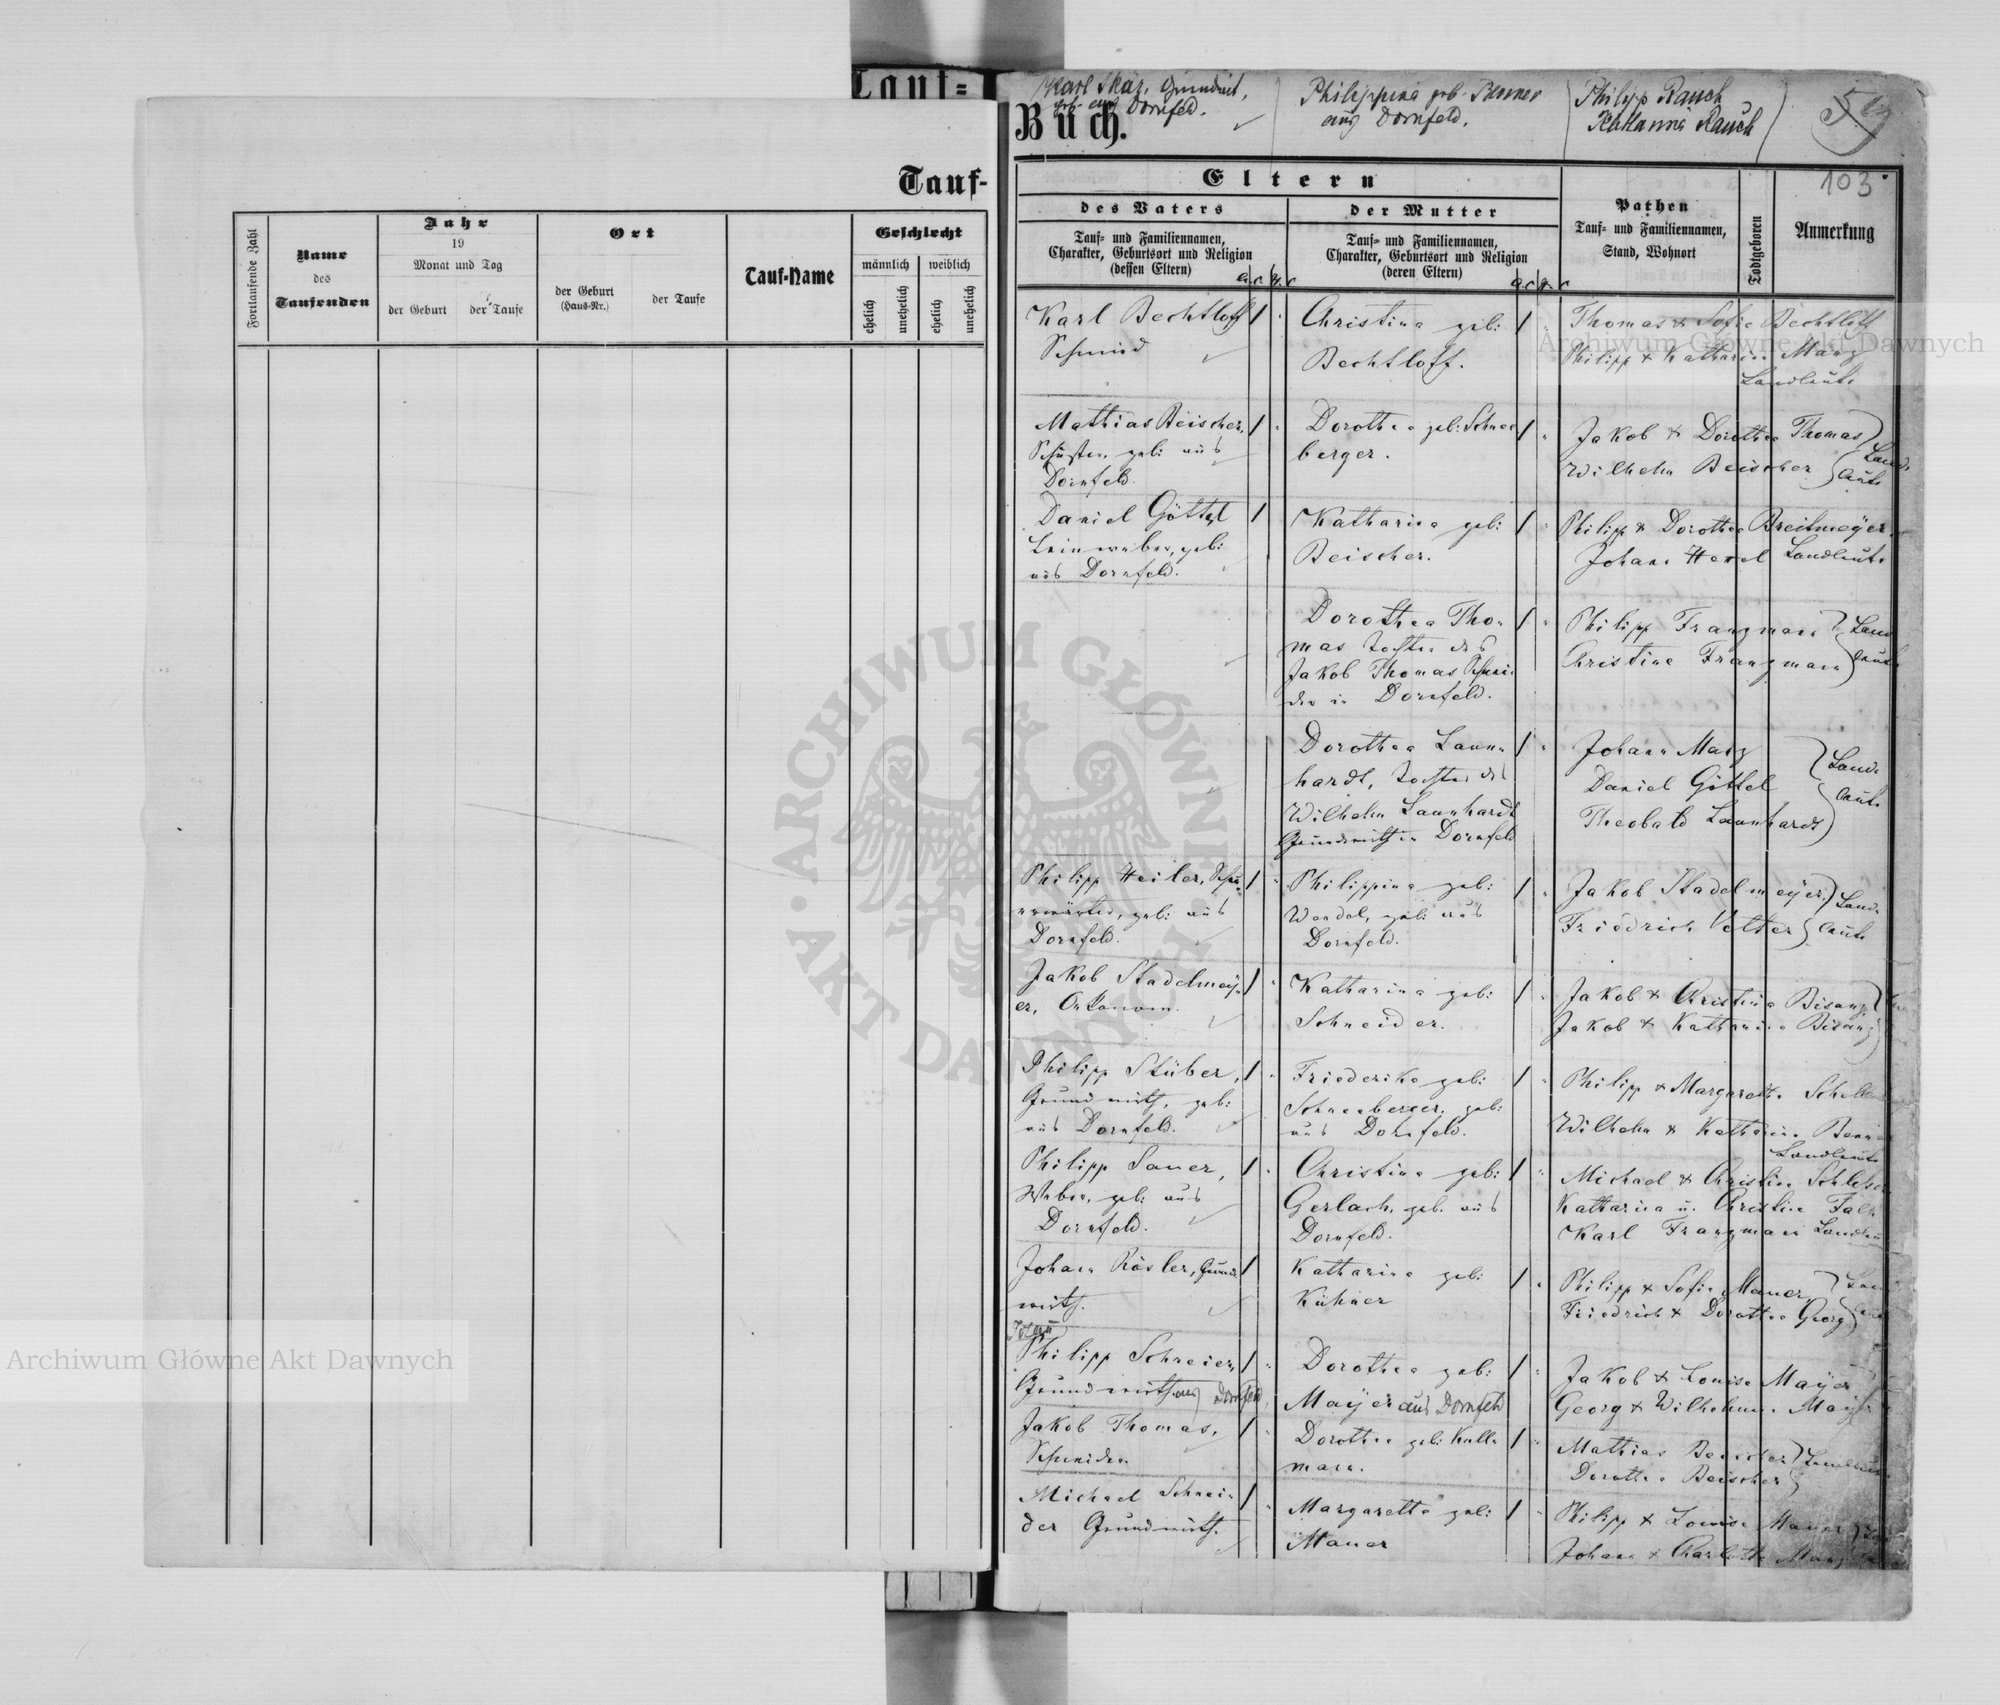 Tauf-
Karl Skär, Grundwirt,
geb. aus Dornfeld.
Buch.
Philippina geb.
aus Dornfeld.
Philipp Rauch
Rauch
103
Tauf-
Fortlaufende Zahl
Name
des
Taufenden
Jahr
19
Monat und Tag
der Geburt
der Taufe
Ort
der Geburt
(Haus-Nr.)
der Taufe
Tauf-Name
Geschlecht
männlich
weiblich
ehelich
unehelich
ehelich
unehelich
Eltern
des Vaters
Tauf- und Familiennamen,
Charakter, Geburtsort und Religion
(dessen Eltern)
der Mutter
Tauf- und Familiennamen,
Charakter, Geburtsort und Religion
(deren Eltern)
Pathen
Tauf- und Familiennamen,
Stand, Wohnort
Todtgeboren
Anmerkung
Karl Bechtloff
Schmied
Christina geb:
Bechtloff.
Thomas & Sofie Bechtloff
Philipp & Katharina Manz
Landleute
Mathias Beischer,
Schuster, geb: aus
Dornfeld.
Dorothea geb: Schnee
berger.
Jakob & Dorothea Thomas
Wilhelm Beischer
Land-
leute
Daniel Göttel
Leinweber, geb:
aus Dornfeld.
Katharina geb:
Beischer.
Philipp & Dorothea Breitmeyer
Johann Hexel Landleute
Dorothea Tho-
mas Tochter des
Jakob Thomas Schnei-
der in Dornfeld.
Philipp Franzmann
Christine Franzmann
Land-
leute
Dorothea Laun-
hardt, Tochter des
Wilhelm Launhardt
Grundwirth in Dornfeld
Johann Manz
Daniel Göttel
Theobald Launhardt
Land-
leute
Philipp Heiler,
geb: aus
Dornfeld.
Philippina geb:
Wendel, geb: aus
Dornfeld.
Jakob Stadelmeyer
Friedrich Vetter
Land-
leute
Jakob Stadelmey-
er, Oekonom.
Katharina geb:
Schneider.
Jakob & Christina Bisanz
Jakob & Katharina Bisanz
Philipp Stüber,
Grundwirth, geb:
aus Dornfeld.
Friederike geb:
Schneeberger, geb:
aus Dornfeld.
Philipp & Margaretha
Wilhelm & Katharina
Landleute
Philipp Sauer,
Weber, geb: aus
Dornfeld.
Christina geb:
Gerlach, geb. aus
Dornfeld.
Michael & Christine
Katharina u. Christine
Karl Franzmann
Johann Rösler, Grund
wirth.
Katharina geb:
Kühner
Philipp & Sofie Mauer
Friedrich & Dorothea Georg
Philipp Schreier,
Grundwirth aus Dornfeld,
Dorothea geb:
Mayer aus Dornfeld
Jakob & Louise Mayer
Georg & Wilhelmine Mayer
Jakob Thomas,
Schneider
Dorothea geb: Kull-
mann.
Mathias Beischer
Dorothea Beischer
Landleute
Michael Schnei-
der Grundwirth.
Margaretha geb:
Mauer
Philipp & Louise Mauer
Johann & Charlotte Manz
Archiwum Główne Akt Dawnych
ARCHIWUM GŁÓWNE • AKT DAWNYCH •
Archiwum Główne Akt Dawnych